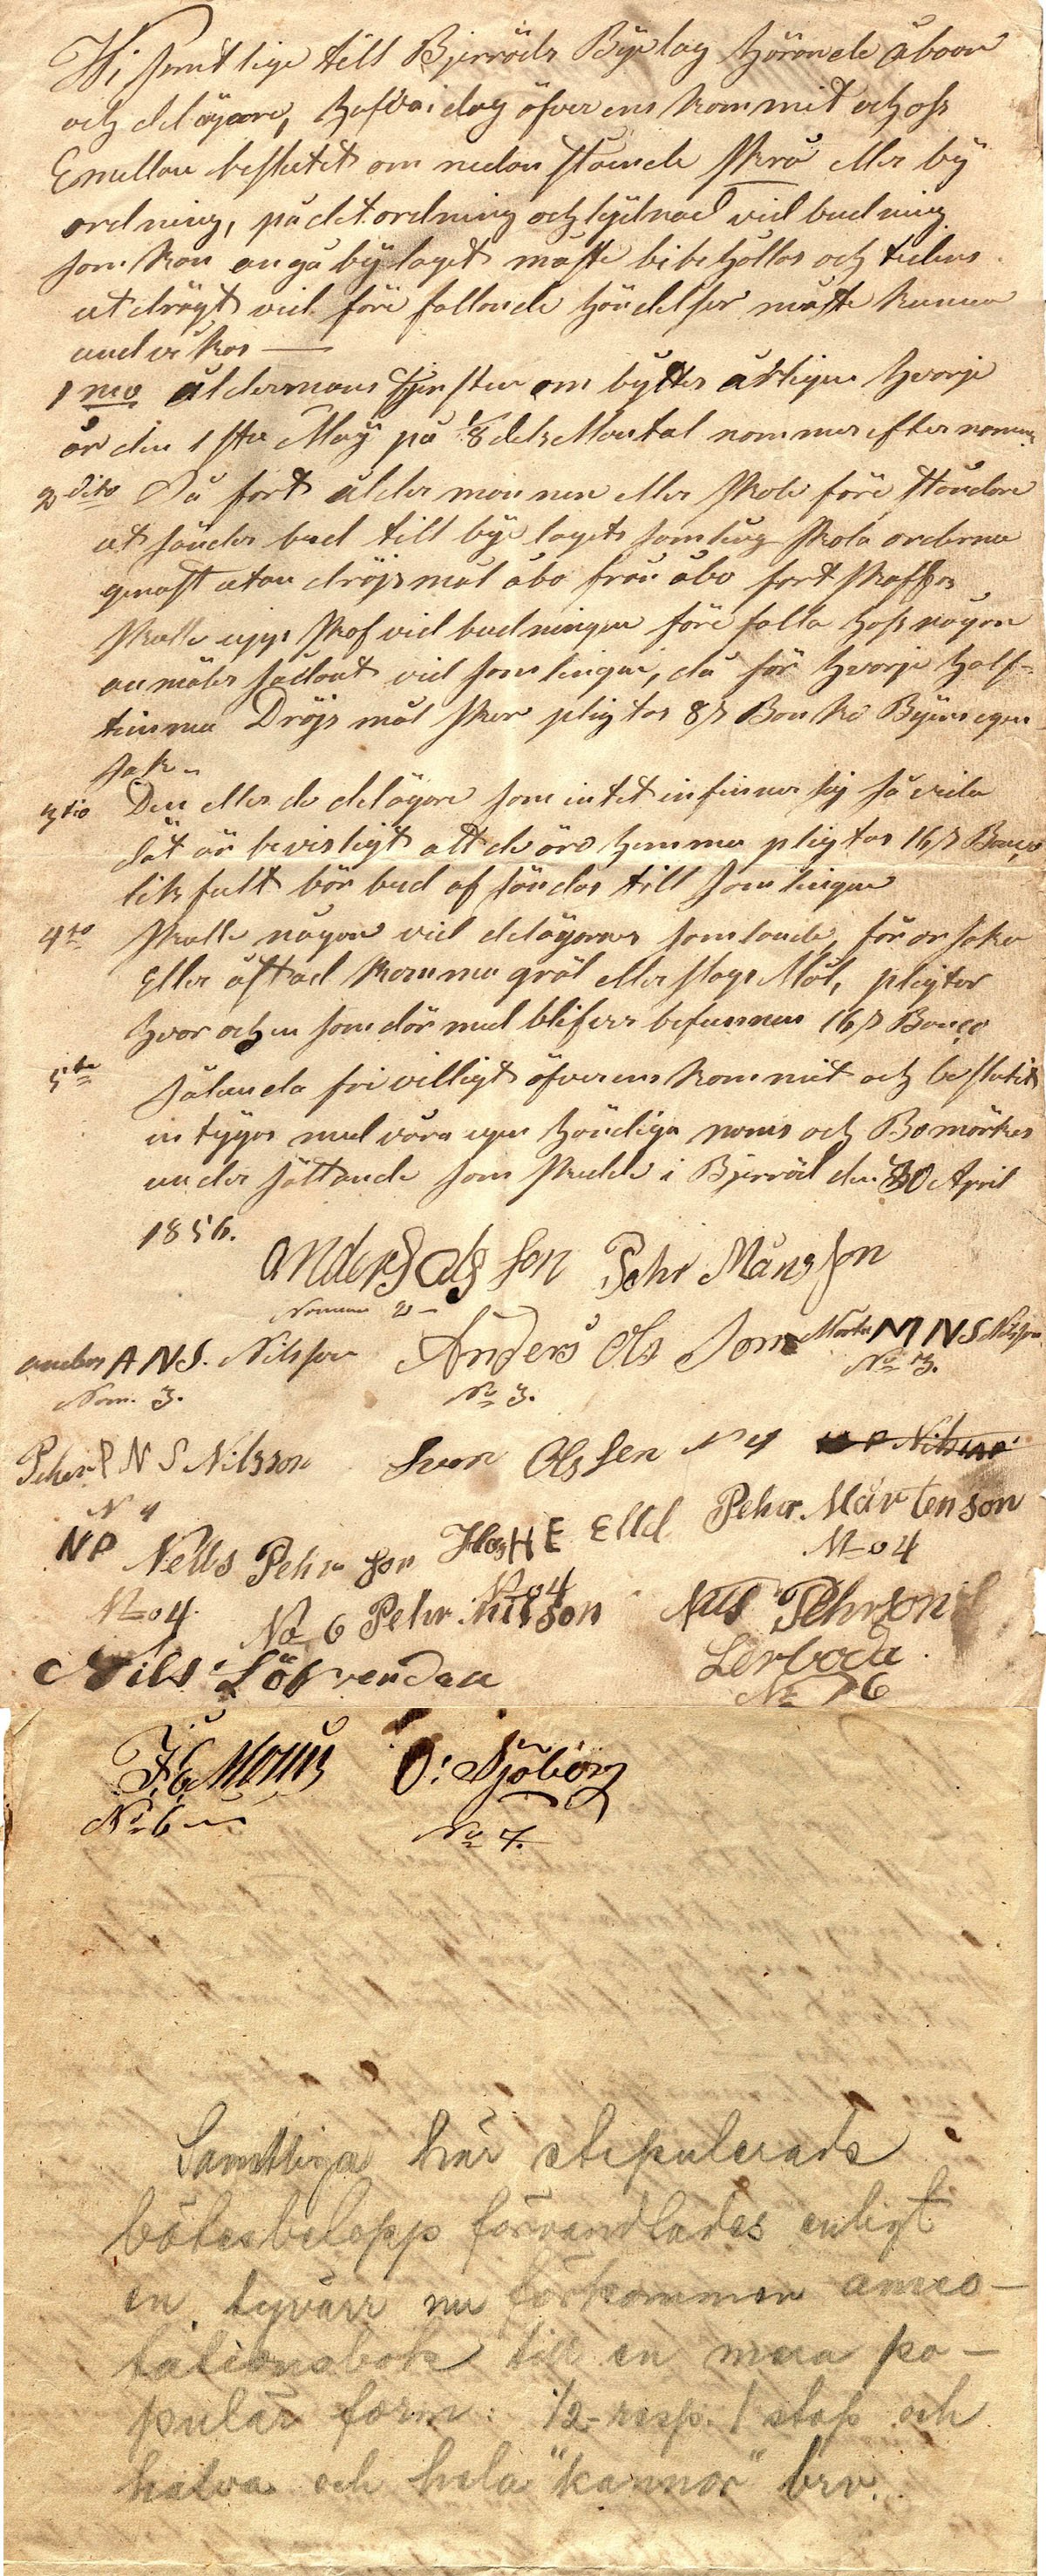 Wi samtlige till Bjerröds Byelag hörande åboar
och delägare, hafva i dag öfverens kommit och oss
Emellan beslutit om nedan stående skrå eller by
ordning, på det ordning och lydnad vid budning
som kan angå bylaget måste bibehållas och tidens
utdrägt vid före fallande händelser måste kunna
undvikas —
1mo åldermans tjensten om byttes årligen hvarje
år den 1sta Maÿ på 1/8 dels Mantal nommer efter nommer
2dito Så fort åldermannen eller skole före ståndare
utsänder bud till bye lagets samling skola orderna
genast utan dröjsmål åbo från åbo fort skaffas
skulle uppskof vid budningen före falla hoss någon
anmäles sådant vid samlingen, då för hvarje half-
timma Dröjsmål sker pligtas 8 s Banko Byens egen
sak.
3tio Den eller de delägare som intet infinner sig så vida
dät är bevisligt att de äro hemma pligtas 16 s Banco
likfult bör bud af sändas till samlingen
4to Skulle någon vid delägarnes samlande, för orsaka
Eller åstad komma gräl eller slags Mål, pligtar
hvar och en som där med blifver befunnen 16 s Banco
5te Sålunda frivilligt öfverens kommit och beslutit
intygas med våra egen händiga namn och Bomärkes
under sättande som skedde i Bjerröd den 30 April
1856.
Anders Ols Son Pehr Månsson
Nommer 2
anders ANS. Nilsson Anders Ols Son Mårten MNS Nilsson
Nom. 3. No 3. No 3.
Pehr PNS Nilsson Sven Olssen N 4
N 4
NP Nells Pehrsson HE Elld Pehr Mårtenson
No 4. No 4 No 4
No 6 Pehr Nilsson Nils Pehrson
Nils Löfvendau Lerboda
No 6
No 6 O: Sjöborg
No 7.
Samtliga här stipulerade
bötesbelopp förvandlades enligt
en tyvärr nu förkommen anno-
tationsbok till en mera po-
pulär form: 1/2- resp. 1 stop och
halva och hela "kannor" brv.